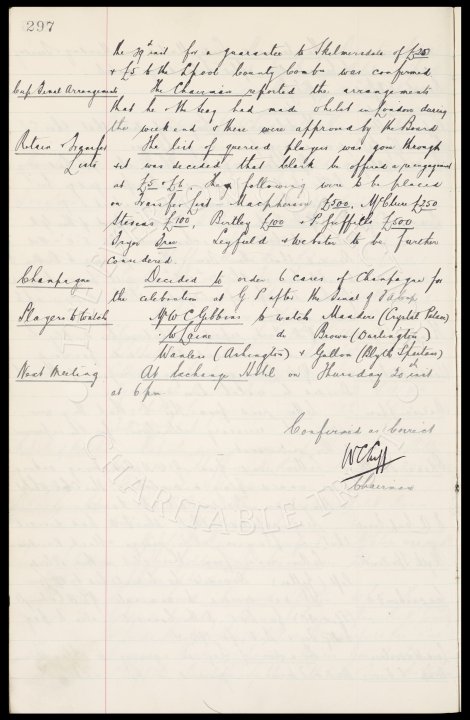 297
the 29th inst for a guarantee to Skelmersdale of £20
& £5 to the Lpool County Comb was confirmed
Cup Final Arrangements The Chairman reported the arrangements
that he & the Secy had made whilst in London during
the weekend & these were approved by the Board
Retain & Transfer The list of queried players was gone through
Lists & it was decided that Clark be offered a reengagement
at £5 & £6. The following were to be placed
on Transfer List Macpherson £500, McClure £250
Stevens £100, Birtley £100 & P. Griffiths £500
Fryer Free Leyfield & Webster to be further
considered
Champagne Decided to order 6 cases of Champagne for
the celebration at G P after the Final of
Players to watch Mr W C Gibbins to watch Manders (Crystal Palace)
do Brown (Darlington)
(Ashington) & (Blyth Spartans)
Next Meeting At Exchange Hotel on Thursday 20th inst
at 6 pm
Confirmed as Correct
W C Cuff
Chairman
CHARITABLE TR